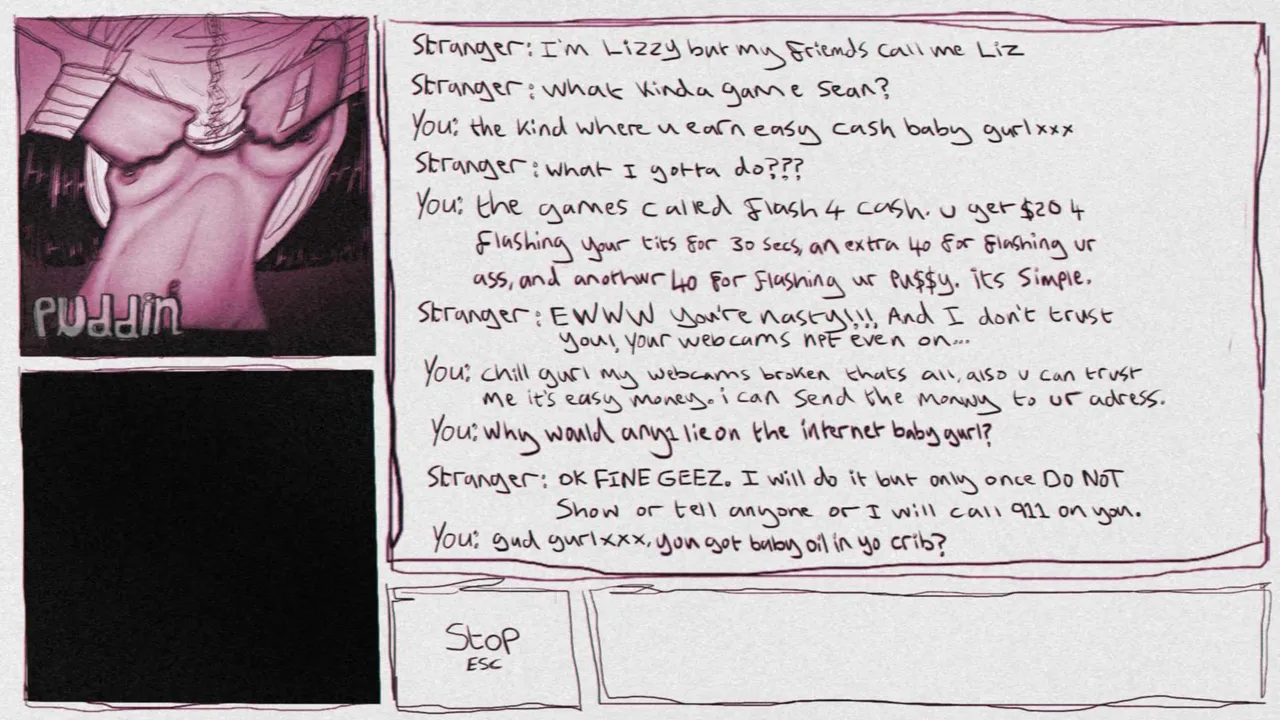 Stranger: I'm Lizzy but my friends call me Liz
Stranger: what kinda game Sean?
You: the kind where u earn easy cash baby gurlxxx
Stranger: what I gotta do???
You: the games called flash 4 cash. u get $20 4
flashing your tits for 30 secs, an extra 40 for flashing ur
ass, and anothwr 40 for flashing ur Pu$$y. its simple.
Stranger: EWWW you're nasty!!! And I don't trust
you!, your webcams not even on...
You: chill gurl my webcams broken thats all, also u can trust
me it's easy money. i can send the monwy to ur adress.
You: why would any1 lie on the internet baby gurl?
Stranger: OK FINE GEEZ. I will do it but only once DO NOT
Show or tell anyone or I will call 911 on you.
You: gud gurlxxx, you got baby oil in yo crib?
puddin
Stop
ESC